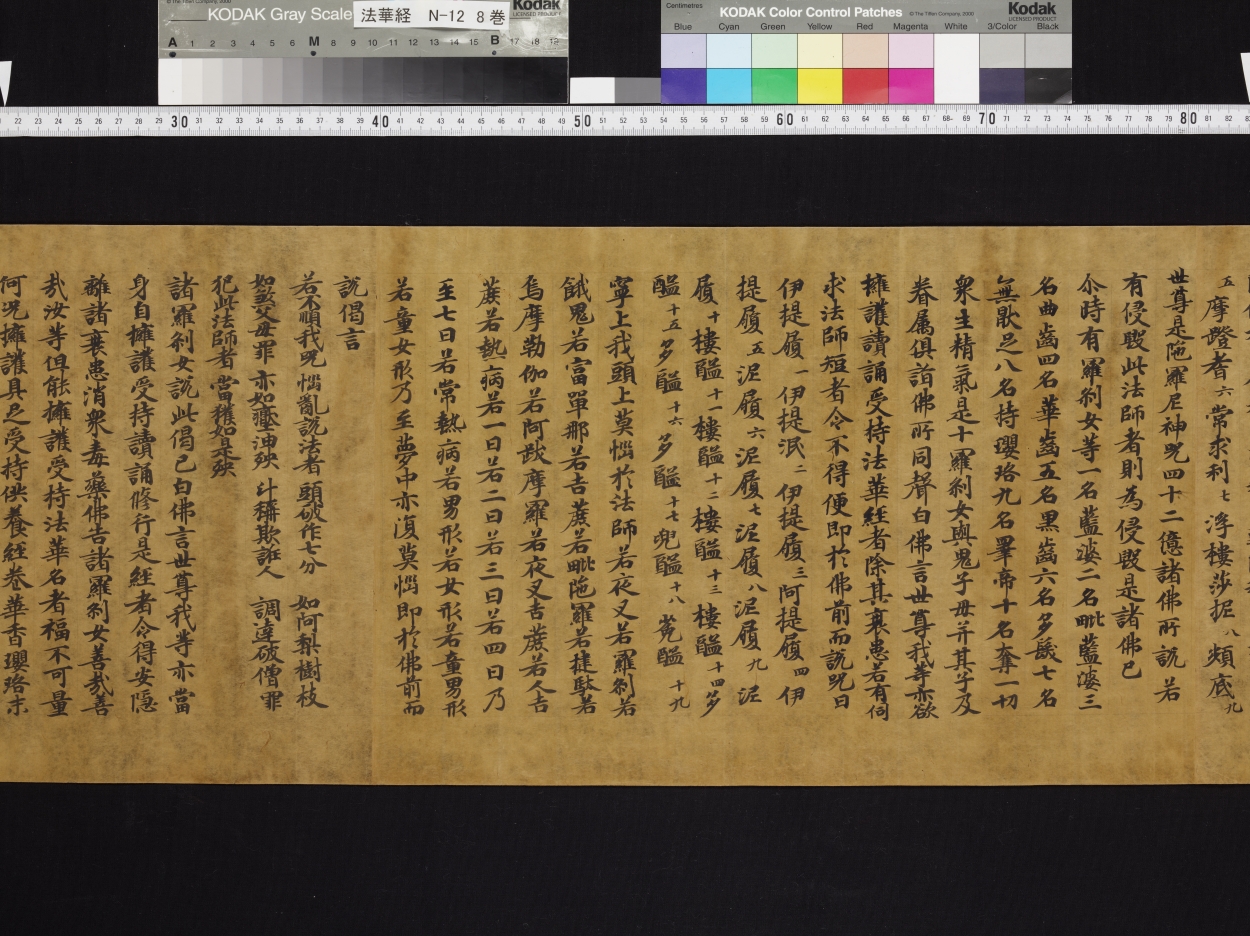 KODAK Gray Scale
法華経 N-12 8巻
Kodak
LICENSED PRODUCT
A 1 2 3 4 5 6 M 8 9 10 11 12 13 14 15 B 17 18 19
Centimetres
KODAK Color Control Patches
© The Tiffen Company, 2000
Kodak
LICENSED PRODUCT
Blue Cyan Green Yellow Red Magenta White 3/Color Black
22 23 24 25 26 27 28 29 30 31 32 33 34 35 36 37 38 39 40 41 42 43 44 45 46 47 48 49 50 51 52 53 54 55 56 57 58 59 60 61 62 63 64 65 66 67 68 69 70 71 72 73 74 75 76 77 78 79 80 81 82
五摩蹬耆六常求利七浮樓莎抳八頞底九
世尊是陁羅尼神呪四十二億諸佛所說若
有侵毀此法師者則為侵毀是諸佛已
尒時有羅剎女等一名藍婆二名毗藍婆三
名曲齒四名華齒五名黑齒六名多髮七名
無猒足八名持瓔珞九名睪帝十名奪一切
衆生精氣是十羅剎女與鬼子母并其子及
眷屬俱詣佛所同聲白佛言世尊我等亦欲
擁護讀誦受持法華經者除其衰患若有伺
求法師短者令不得便即於佛前而說呪曰
伊提履一伊提泯二伊提履三阿提履四伊
提履五泥履六泥履七泥履八泥履九泥
履十樓醯十一樓醯十二樓醯十三樓醯十四多
醯十五多醯十六多醯十七兜醯十八㝹醯十九
寧上我頭上莫惱於法師若夜叉若羅剎若
餓鬼若富單那若吉蔗若毗陁羅若揵馱若
烏摩勒伽若阿跋摩羅若夜叉吉蔗若人吉
蔗若熱病若一日若二日若三日若四日乃
至七日若常熱病若男形若女形若童男形
若童女形乃至夢中亦復莫惱即於佛前而
說偈言
若不順我呪 惱亂說法者 頭破作七分 如阿梨樹枝
如煞父母罪 亦如壓油殃 斗秤欺誑人 調達破僧罪
犯此法師者 當獲如是殃
諸羅剎女說此偈已白佛言世尊我等亦當
身自擁護受持讀誦修行是經者令得安隱
離諸衰患消衆毒藥佛告諸羅剎女善哉善
哉汝等但能擁護受持法華名者福不可量
何況擁護具足受持供養經卷華香瓔珞末